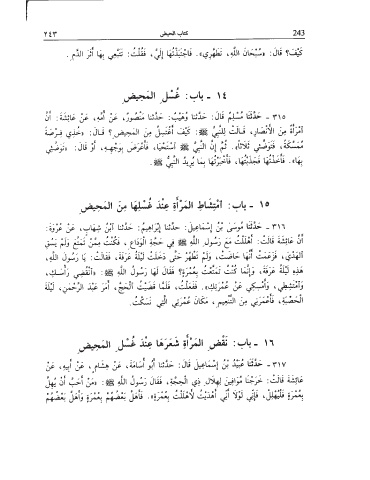 243 كتاب الحيض ٢٤٣
كَيْفَ؟ قَالَ: «سُبْحَانَ اللَّهِ، تَطَهَّرِي». فَاجْتَبَذْتُهَا إِلَيَّ، فَقُلْتُ: تَتَبَّعِي بِهَا أَثَرَ الدَّمِ.
١٤ - باب: غُسْلِ المَحِيضِ
٣١٥ - حَدَّثَنَا مُسْلِمٌ قَالَ: حَدَّثَنَا وُهَيْبٌ: حَدَّثَنَا مَنْصُورٌ، عَنْ أُمِّهِ، عَنْ عَائِشَةَ: أَنَّ
امْرَأَةً مِنَ الأَنْصَارِ، قَالَتْ لِلنَّبِيِّ ﷺ: كَيْفَ أَغْتَسِلُ مِنَ المَحِيضِ؟ قَالَ: «خُذِي فِرْصَةً
مُمَسَّكَةً، فَتَوَضَّئِي ثَلَاثًا». ثُمَّ إِنَّ النَّبِيَّ ﷺ اسْتَحْيَا، فَأَعْرَضَ بِوَجْهِهِ، أَوْ قَالَ: «تَوَضَّئِي
بِهَا». فَأَخَذْتُهَا فَجَذَبْتُهَا، فَأَخْبَرْتُهَا بِمَا يُرِيدُ النَّبِيُّ ﷺ.
١٥ - باب: امْتِشَاطِ المَرْأَةِ عِنْدَ غُسْلِهَا مِنَ المَحِيضِ
٣١٦ - حَدَّثَنَا مُوسَى بْنُ إِسْمَاعِيلَ: حَدَّثَنَا إِبْرَاهِيمُ: حَدَّثَنَا ابْنُ شِهَابٍ، عَنْ عُرْوَةَ:
أَنَّ عَائِشَةَ قَالَتْ: أَهْلَلْتُ مَعَ رَسُولِ اللَّهِ ﷺ فِي حَجَّةِ الْوَدَاعِ، فَكُنْتُ مِمَّنْ تَمَتَّعَ وَلَمْ يَسُقِ
الْهَدْيَ، فَزَعَمَتْ أَنَّهَا حَاضَتْ، وَلَمْ تَطْهُرْ حَتَّى دَخَلَتْ لَيْلَةُ عَرَفَةَ، فَقَالَتْ: يَا رَسُولَ اللَّهِ،
هَذِهِ لَيْلَةُ عَرَفَةَ، وَإِنَّمَا كُنْتُ تَمَتَّعْتُ بِعُمْرَةٍ؟ فَقَالَ لَهَا رَسُولُ اللَّهِ ﷺ: «انْقُضِي رَأْسَكِ،
وَامْتَشِطِي، وَأَمْسِكِي عَنْ عُمْرَتِكِ». فَفَعَلْتُ، فَلَمَّا قَضَيْتُ الْحَجَّ، أَمَرَ عَبْدَ الرَّحْمَنِ، لَيْلَةَ
الْحَصْبَةِ، فَأَعْمَرَنِي مِنَ التَّنْعِيمِ، مَكَانَ عُمْرَتِي الَّتِي نَسَكْتُ.
١٦ - باب: نَقْضِ المَرْأَةِ شَعَرَهَا عِنْدَ غُسْلِ المَحِيضِ
٣١٧ - حَدَّثَنَا عُبَيْدُ بْنُ إِسْمَاعِيلَ قَالَ: حَدَّثَنَا أَبُو أُسَامَةَ، عَنْ هِشَامٍ، عَنْ أَبِيهِ، عَنْ
عَائِشَةَ قَالَتْ: خَرَجْنَا مُوَافِينَ لِهِلَالِ ذِي الْحِجَّةِ، فَقَالَ رَسُولُ اللَّهِ ﷺ: «مَنْ أَحَبَّ أَنْ يُهِلَّ
بِعُمْرَةٍ فَلْيُهْلِلْ، فَإِنِّي لَوْلَا أَنِّي أَهْدَيْتُ لَأَهْلَلْتُ بِعُمْرَةٍ». فَأَهَلَّ بَعْضُهُمْ بِعُمْرَةٍ، وَأَهَلَّ بَعْضُهُمْ